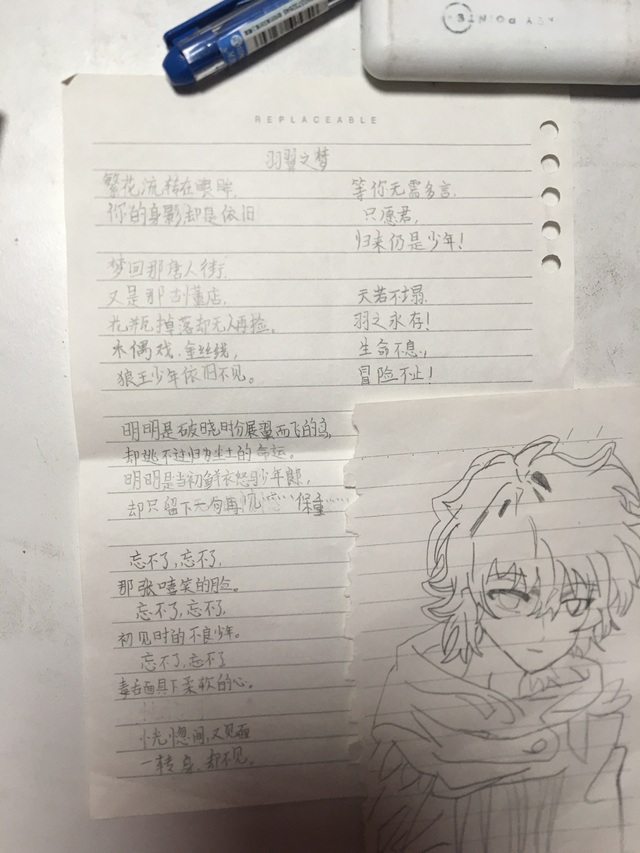 REPLACEABLE
羽翼之梦
繁花流转在眼眸,
你的身影却是依旧
梦回那唐人街,
又是那古懂店,
花瓶掉落却无人再捡,
木偶戏、金丝线,
狼王少年依旧不见。
明明是破晓时份展翼而飞的鸟,
却逃不过归为尘土的命运。
明明是当初鲜衣怒马少年郎,
却只留下一句再见…… 保重……
忘不了,忘不了,
那张嘻笑的脸。
忘不了,忘不了,
初见时的不良少年。
忘不了,忘不了
毒舌面具下柔软的心。
恍惚间,又见面
一转身,却不见。
等你无需多言.
只愿君,
归来仍是少年!
天若不塌.
羽之永存!
生命不息,
冒险不止!